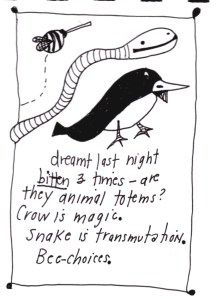 dreamt last night
bitten 3 times – are
they animal totems?
Crow is magic.
Snake is transmutation.
Bee-choices.